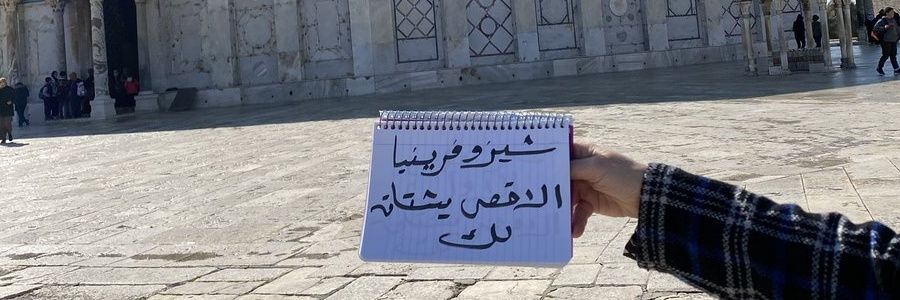 شيزوفرينيا
الاقصى يشتاق
لك